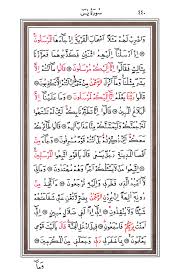 سورة يس ٤٤٠
وَاضْرِبْ لَهُمْ مَثَلًا اَصْحَابَ الْقَرْيَةِ اِذْ جَٓاءَهَا الْمُرْسَلُونَ
اِذْ اَرْسَلْنَٓا اِلَيْهِمُ اثْنَيْنِ فَكَذَّبُوهُمَا فَعَزَّزْنَا
بِثَالِثٍ فَقَالُٓوا اِنَّٓا اِلَيْكُمْ مُرْسَلُونَ قَالُوا مَٓا اَنْتُمْ اِلَّا
بَشَرٌ مِثْلُنَا وَمَٓا اَنْزَلَ الرَّحْمٰنُ مِنْ شَيْءٍ اِنْ اَنْتُمْ اِلَّا تَكْذِبُونَ
قَالُوا رَبُّنَا يَعْلَمُ اِنَّٓا اِلَيْكُمْ لَمُرْسَلُونَ وَمَا عَلَيْنَٓا اِلَّا
الْبَلَاغُ الْمُبِينُ قَالُٓوا اِنَّا تَطَيَّرْنَا بِكُمْ لَئِنْ لَمْ تَنْتَهُوا
لَنَرْجُمَنَّكُمْ وَلَيَمَسَّنَّكُمْ مِنَّا عَذَابٌ اَلِيمٌ قَالُوا طَٓائِرُكُمْ
مَعَكُمْ اَئِنْ ذُكِّرْتُمْ بَلْ اَنْتُمْ قَوْمٌ مُسْرِفُونَ وَجَٓاءَ مِنْ اَقْصَا
الْمَدِينَةِ رَجُلٌ يَسْعٰى قَالَ يَا قَوْمِ اتَّبِعُوا الْمُرْسَلِينَ
اِتَّبِعُوا مَنْ لَا يَسْـَٔلُكُمْ اَجْرًا وَهُمْ مُهْتَدُونَ
وَمَا لِيَ لَٓا اَعْبُدُ الَّذِي فَطَرَنِي وَاِلَيْهِ تُرْجَعُونَ ءَاَتَّخِذُ
مِنْ دُونِهِٓ اٰلِهَةً اِنْ يُرِدْنِ الرَّحْمٰنُ بِضُرٍّ لَا تُغْنِ عَنِّي شَفَاعَتُهُمْ
شَيْـًٔا وَلَا يُنْقِذُونِ اِنِّٓي اِذًا لَفِي ضَلَالٍ مُبِينٍ اِنِّٓي
اٰمَنْتُ بِرَبِّكُمْ فَاسْمَعُونِ قِيلَ ادْخُلِ الْجَنَّةَ قَالَ يَا لَيْتَ قَوْمِي
يَعْلَمُونَ بِمَا غَفَرَ لِي رَبِّي وَجَعَلَنِي مِنَ الْمُكْرَمِينَ
وَمَٓا